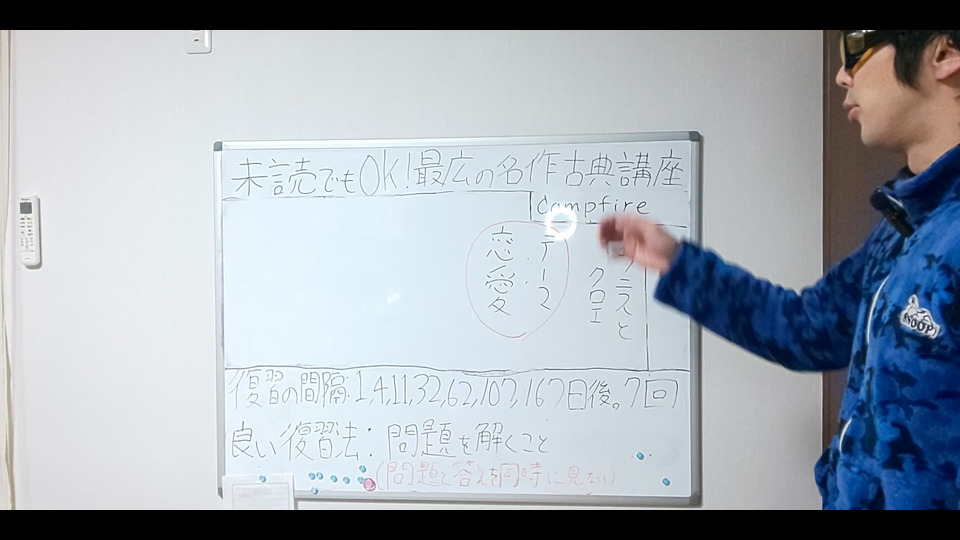 未読でもOK!最広の名作古典講座
Campfire
ニスと
クロエ
テーマ
恋愛
復習の間隔:1,4,11,32,62,107,167日後。7回
良い復習法:問題を解くこと
(問題と答えを同時に見ない)